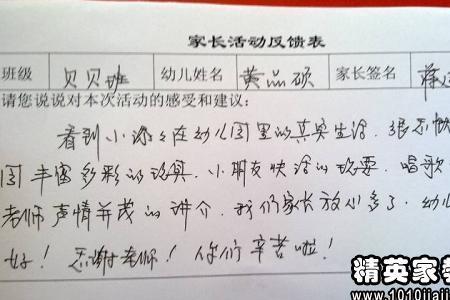 家长活动反馈表
班级 贝贝班 幼儿姓名 黄品硕 家长签名
请您说说对本次活动的感受和建议:
看到小孩在幼儿园里的真实生活,很
园丰富多彩的玩具,小朋友快活的玩耍,唱歌
老师声情并茂的讲介,我们家长放心多了,幼儿
好!感谢老师!你们辛苦啦!
精英家教
www.1010jiajiao